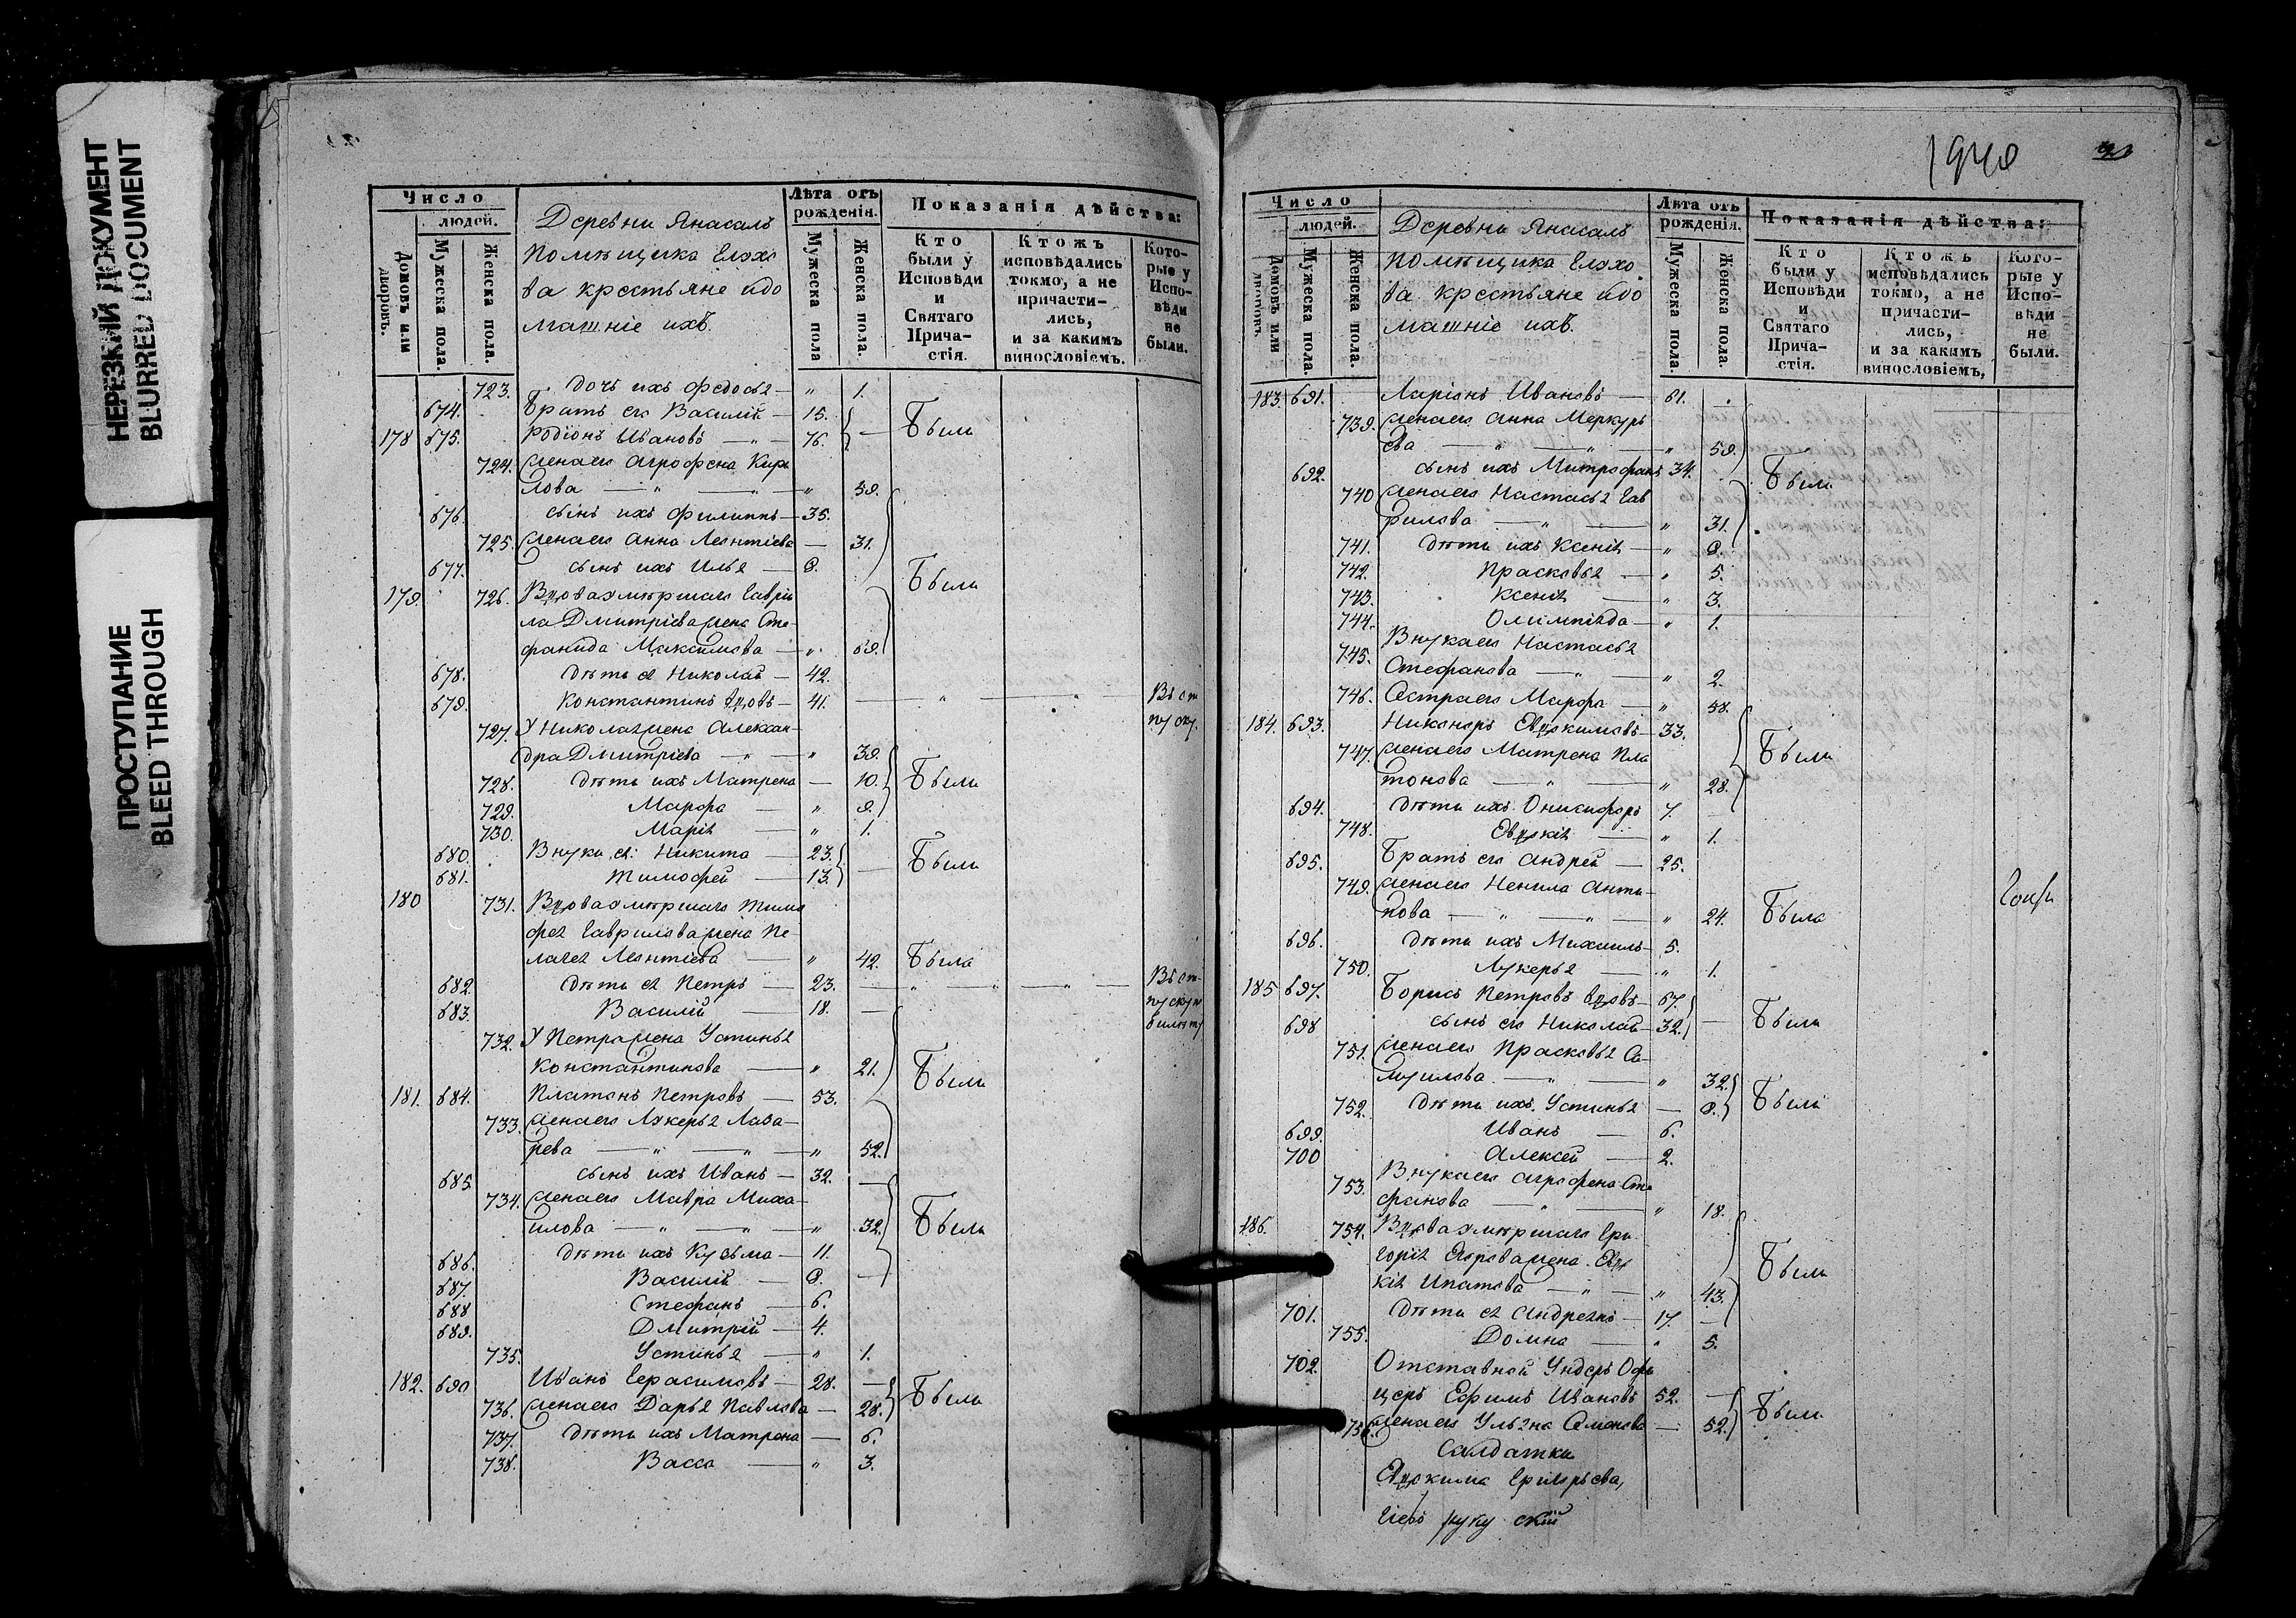 НЕРЕЗКИЙ ДОКУМЕНТ
BLURRED DOCUMENT
ПРОСТУПАНИЕ
BLEED THROUGH
Число
людей.
Домовъ или дворовъ.
Мужеска пола.
Женска пола.
Деревни Янасалъ
помѣщика Елэхо
ва крестьяне идо
машніе ихъ.
Лѣта отъ рожденія.
Мужеска пола
Женска пола.
Показанія дѣйства:
Кто были у Исповѣди и Святаго Прича-стія.
Ктожъ исповѣдались токмо, а не причасти-лись, и за какимъ винословіемъ.
Кото-рые у Испо-вѣди не были.
723. дочь ихъ Федосья — " 1.
674. Братъ его Василій — 15. Были
178 675. Родіонъ Ивановъ — " — 76.
724. Жена его Агрофена Кири
лова — " — " — " 59.
676. сынъ ихъ Филиппъ — 35.
725. Жена его Анна Леонтіева — 31.
677. сынъ ихъ Илья — 8. Были
179. 726. Вдова умершаго Гаври
ла Дмитріева жена Сте
фанида Максимова — " 69.
678. дѣти ея Николай — 42.
679. Константинъ вдовъ — 41. — " — " — Въ от
пуску.
727. У Николая жена Алексан-
дра Дмитріева — " — " 39.
728. дѣти ихъ Матрена — 10. Были
729. Марфа — " 9.
730. Марія — " 1.
680. Внуки ея: Никита — 23. Были
681. Тимофей — 13.
180 731. Вдова умершаго Тимо
фея Гаврилова жена Пе-
лагея Леонтіева — " 42. Была
682. дѣти ея Петръ — 23. — " — " — " — Въ от-
683. Василій — 18. — пуску и
билету
732. У Петра жена Устинья
Константинова — " 21. Были
181. 684. Платонъ Петровъ — 53.
733. Жена его Лукерья Лаза-
рева — " — " — " 52.
685. сынъ ихъ Иванъ — 32. —
734. Жена его Мавра Миха-
илова — " — " — " 32. Были
686. дѣти ихъ Кузьма — 11.
687. Василій — 8. —
688 Стефанъ — 6.
689. Дмитрій — 4.
735. Устинья — " 1.
182. 690 Иванъ Герасимовъ — 28. —
736. Жена его Дарья Павлова — 28. Были
737. дѣти ихъ Матрона — 6.
738. Васса — " 3.
Число
людей.
Домовъ или дворовъ.
Мужеска пола.
Женска пола.
Деревни Янасалъ
помѣщика Елэхо
ва крестьяне идо
машніе ихъ.
Лѣта отъ рожденія.
Мужеска пола
Женска пола.
Показанія дѣйства:
Кто были у Исповѣди и Святаго Прича-стія.
Ктожъ исповѣдались токмо, а не причасти-лись, и за какимъ винословіемъ,
Кото-рые у Испо-вѣди не были.
183. 691. Ларіонъ Ивановъ — 61.
739. Жена его Анна Меркурь
ева — " — " — " 59.
692. сынъ ихъ Митрофанъ 34. Были
740 Жена его Настасья Гав
рилова — " — " 31.
741. дѣти ихъ Ксенія — " 8.
742. Прасковья — " 5.
743. Ксенія — " 3.
744. Олимпіада — " 1.
745. Внука его Настасья
Стефанова — " — " 2.
746. Сестра его Марфа — " 58.
184. 693. Никаноръ Евдокимовъ — 33.
747. Жена его Матрена Пла Были
тонова — " — " 28.
694. дѣти ихъ Онисифоръ 7.
748. Евдокія — " 1.
695. Братъ его Андрей — 25.
749. Жена его Ненила Анти-
пова — " — " — " 24. Была
696. дѣти ихъ Михаилъ — 5.
750. Лукерья — " 1.
185 697. Борисъ Петровъ вдовъ — 67.
698 сынъ его Николай — 32. — Были
751. Жена его Прасковья Са-
муилова — " — " 32.
752. дѣти ихъ Устинья — 8. Были
699. Иванъ — 6.
700 Алексей — 2.
753. Внука его Агрофена Сте
фанова — " — " 18.
186. 754. Вдова умершаго Гри-
горія Егорова жена Евдо
кія Ипатова — " — " 43. Были
701. дѣти ея Андреянъ — 17. —
755. Домна — " 5.
702. Отставной Ундеръ Офи
церъ Ефимъ Ивановъ 52. —
756. Жена его Ульяна Семенова — 52. Были
Салдатки
Евдокима Григорьева,